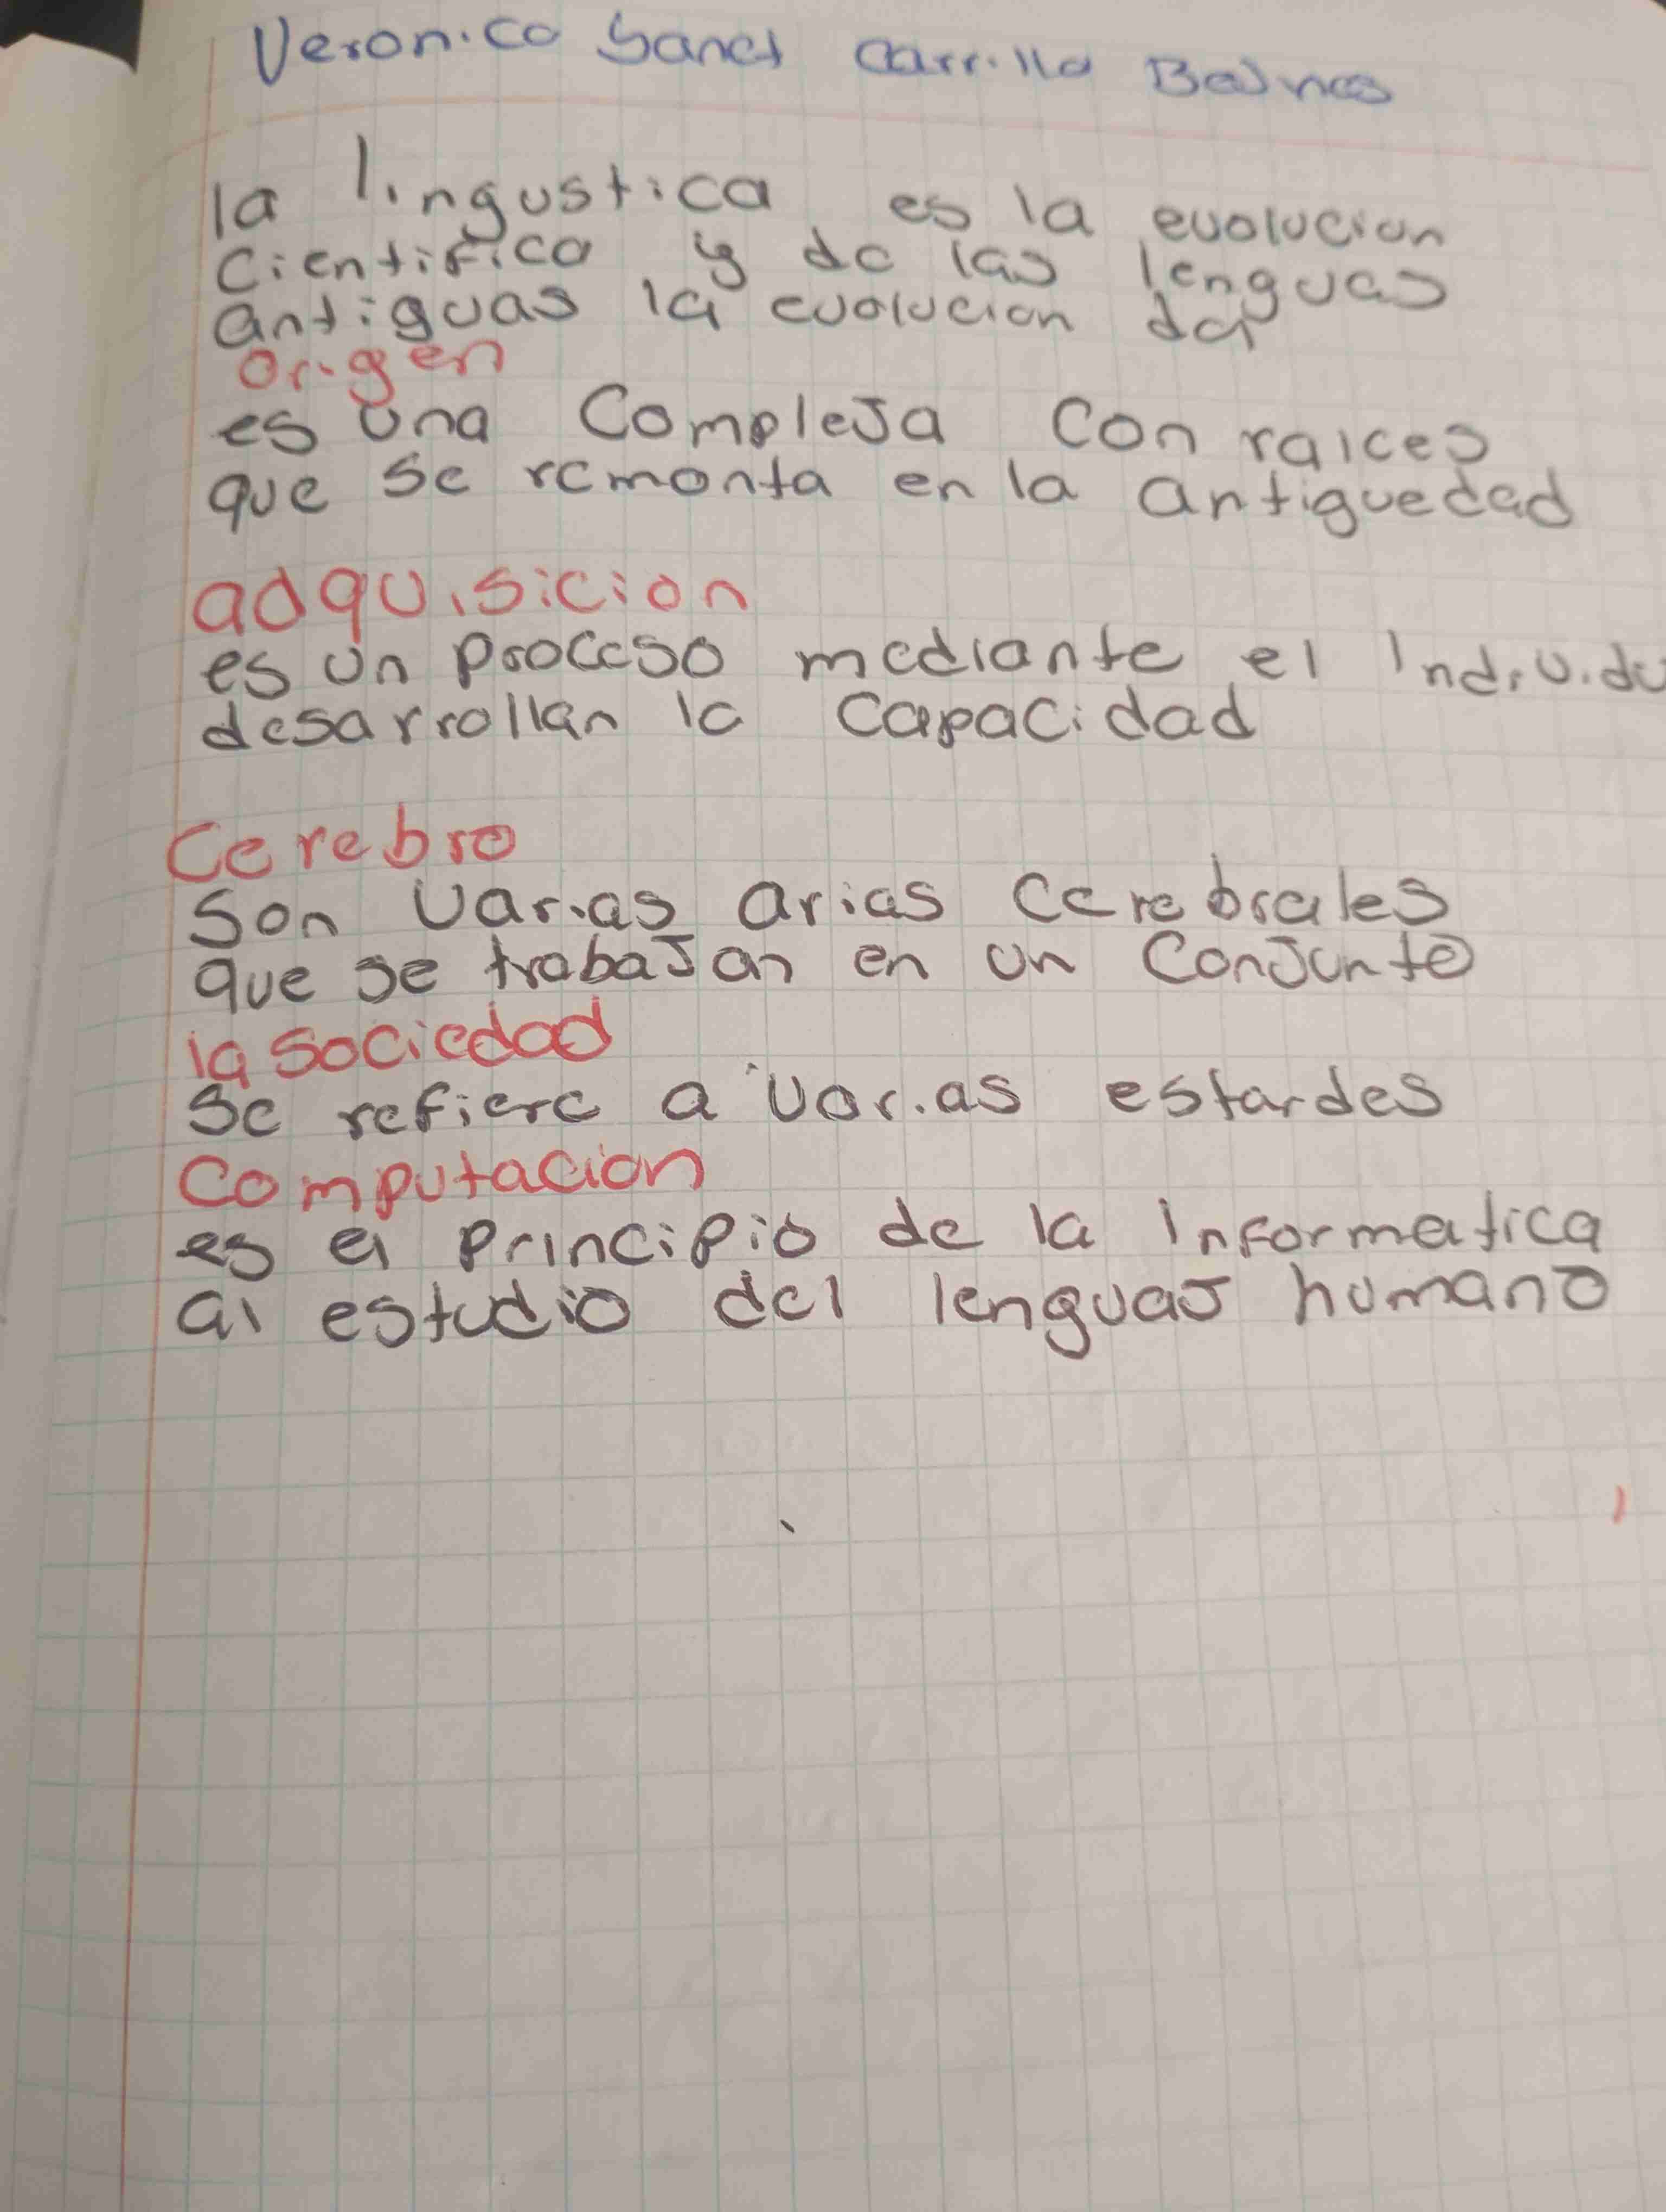 Veronica Sanet Carrillo
la lingustica es la evolucion
Cientifica y de las lenguas
antiguas la evolucion del
Origen
es una CompleJa Con raices
que se remonta en la antiguedad
adquisicion
es un proceso mediante el Individu
desarrollan la capacidad
Cerebro
Son varias arias cerebrales
que se trabaJan en un ConJunto
la Sociedad
Se refiere a varias estardes
Computacion
es el principio de la informatica
al estudio del lenguaJ humano